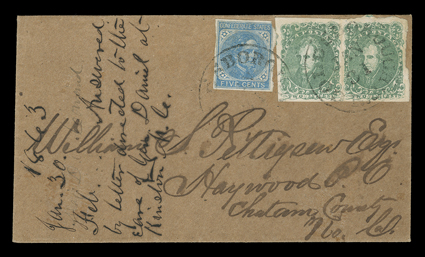 CONFEDERATE STATES
FIVE CENTS
Jan. 30 1863
Feb. Answered
by letter directed to the
care of Gen. Daniel at
Kinston, N. C.
William S. Pettigrew Esq.
Haywood P. O.
Chatam County
No. Ca.